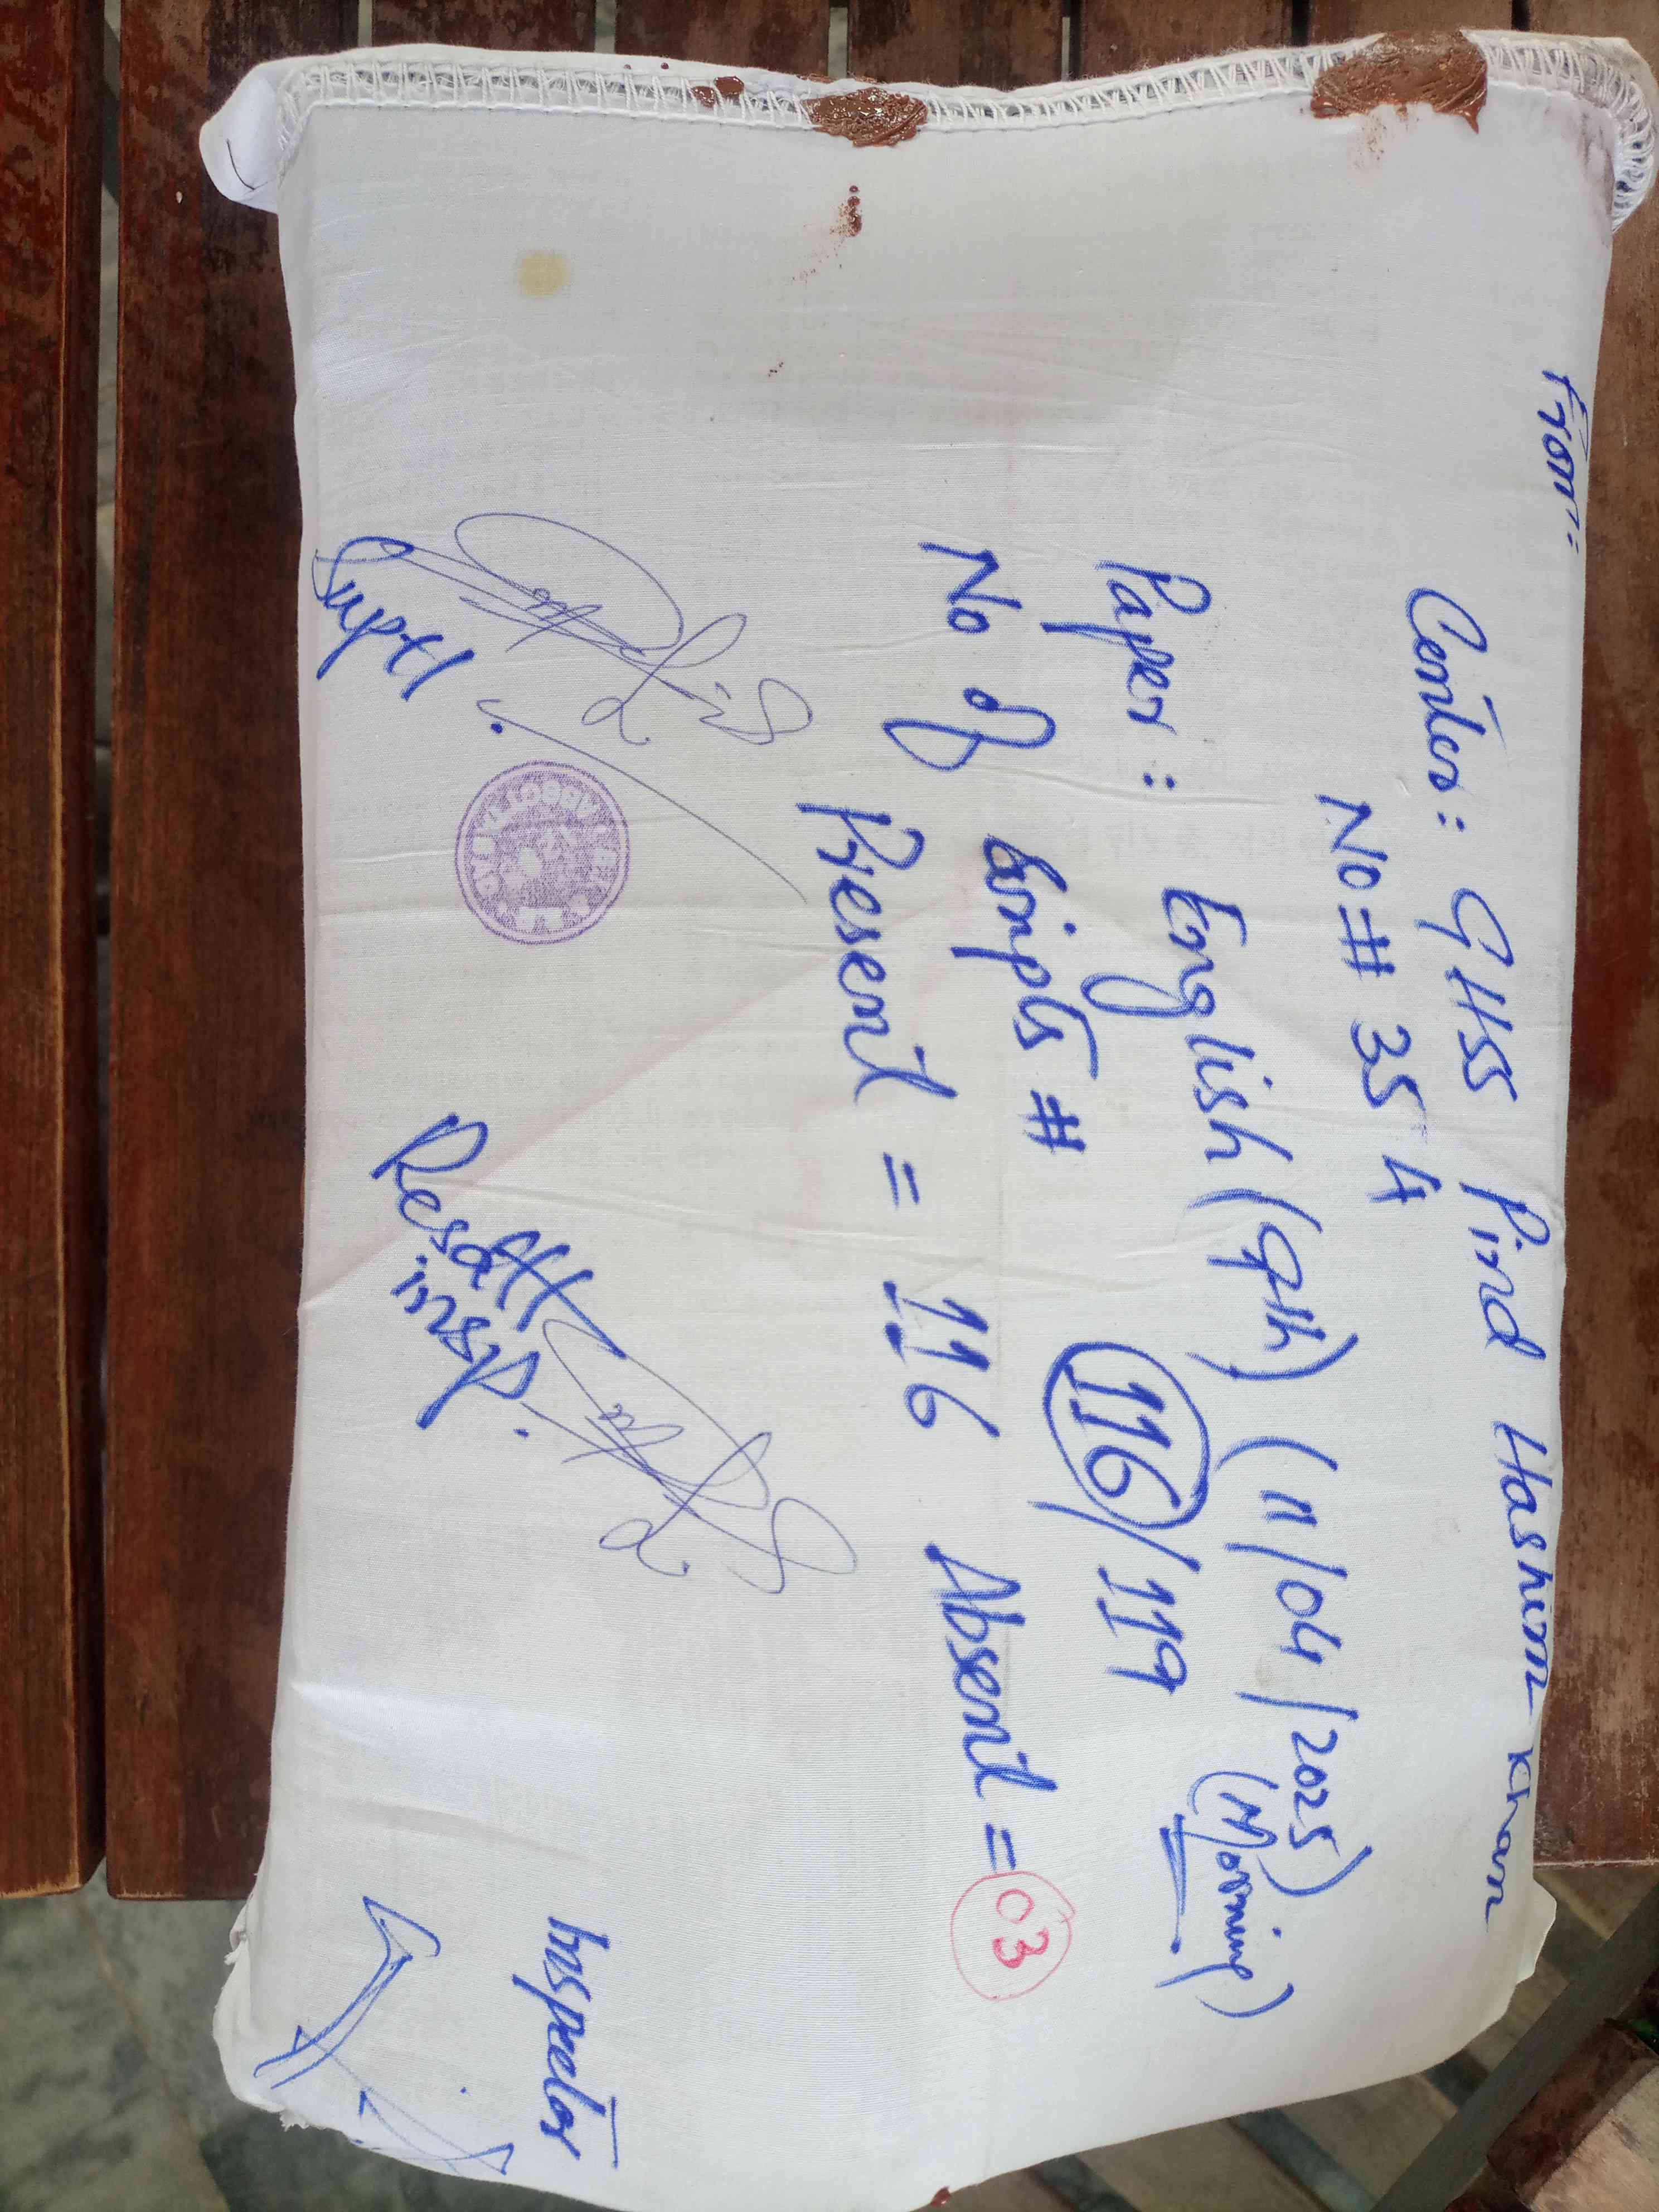 From:
Center: GHSS Pind Hashim Khan
No # 354
Paper: English (9th) (11/04/2025)
(Morning)
No of Scripts # 116/119
Present = 116 Absent = 03
Suptl.
Resdtt insp.
Inspector